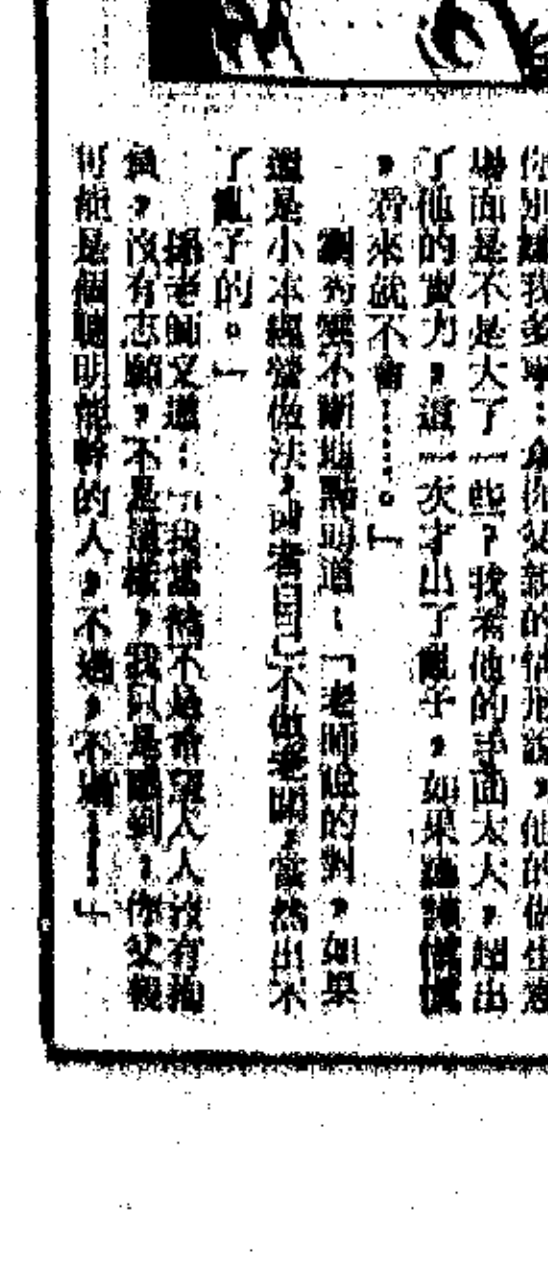 你別嫌我多事：拿你父親的情形說，他的做生意
場面是不是大了一些？我看他的手面太大，超出
了他的實力，這一次才出了亂子，如果謹謹慎慎
，看來就不會……。」
不斷地點頭道：「老師說的對，如果
還是小本經營做法，或者自己不做老闆，當然出不
了亂子的。」
孫老師又道：「我當然不是希望人人沒有抱
負，沒有志願，不是這樣，我只是聽到，你父親
可能是個聰明能幹的人，不過，不過……」